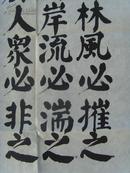 林風必摧之
岸流必湍之
人衆必非之